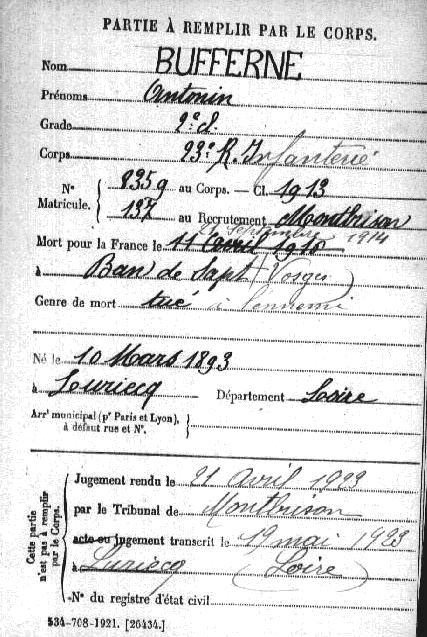 PARTIE À REMPLIR PAR LE CORPS.
Nom BUFFERNE
Prénoms Antonin
Grade 2e cl.
Corps 23e R. Infanterie
N° Matricule. { 8359 au Corps. — Cl. 1913
137 au Recrutement Montbrison
Septembre 1914
Mort pour la France le 11 avril 1915
à Ban de Sapt (Vosges)
Genre de mort tué à l'ennemi
Né le 10 Mars 1893
à Luriecq Département Loire
Arrt municipal (pr Paris et Lyon), à défaut rue et N°. {
Cette partie n'est pas à remplir par le Corps. {
Jugement rendu le 21 avril 1923
par le Tribunal de Montbrison
acte ou jugement transcrit le 19 mai 1923
à Luriecq (Loire)
N° du registre d'état civil
534-708-1921. [26434.]